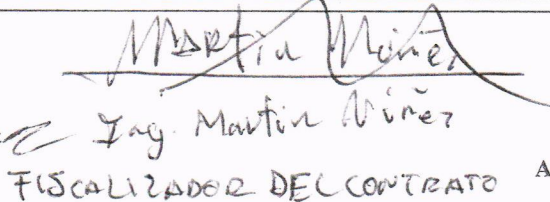 Martin Núñez
Ing. Martin Núñez
FISCALIZADOR DEL CONTRATO A